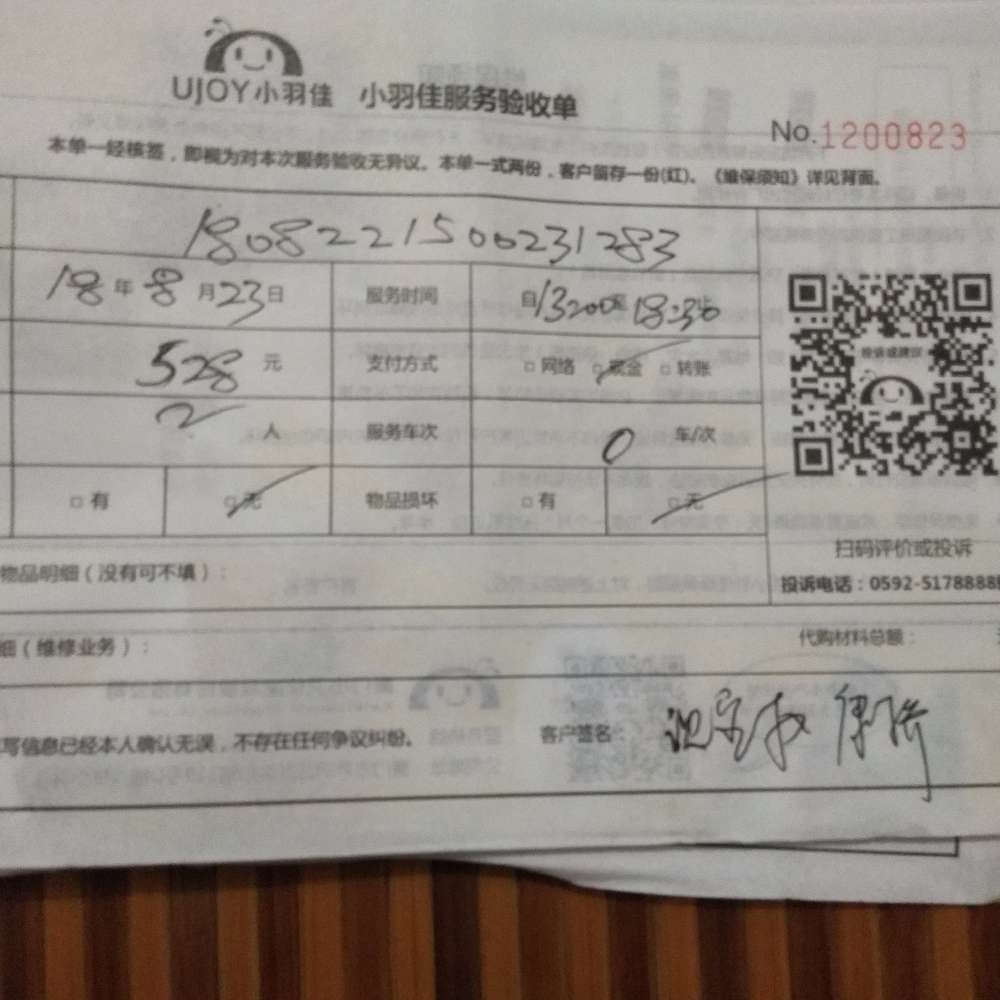 UJOY小羽佳 小羽佳服务验收单
No.1200823
本单一经核签，即视为对本次服务验收无异议。本单一式两份，客户留存一份(红)。《维保须知》详见背面。
1808221500231283
18年8月23日 服务时间 自1320 18:30止
528元 支付方式 □网络 □现金 □转账
2人 服务车次 0车/次
□有 □无 物品损坏 □有 □无
投诉或建议
扫码评价或投诉
投诉电话：0592-5178888
物品明细（没有可不填）：
细（维修业务）： 代购材料总额：
写信息已经本人确认无误，不存在任何争议纠纷。 客户签名：